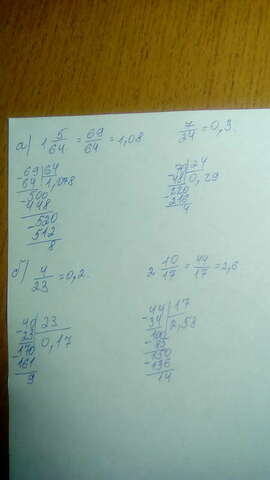 а) 1 5/64 = 69/64 = 1,08
7/24 = 0,3.
69 | 64
64 | 1,078
500
-448
520
-512
8
70 | 24
-48 | 0,29
220
-216
4
б) 4/23 = 0,2.
2 10/17 = 44/17 = 2,6
-40 | 23
23 | 0,17
170
-161
9
-44 | 17
34 | 2,58
100
-85
150
-136
14